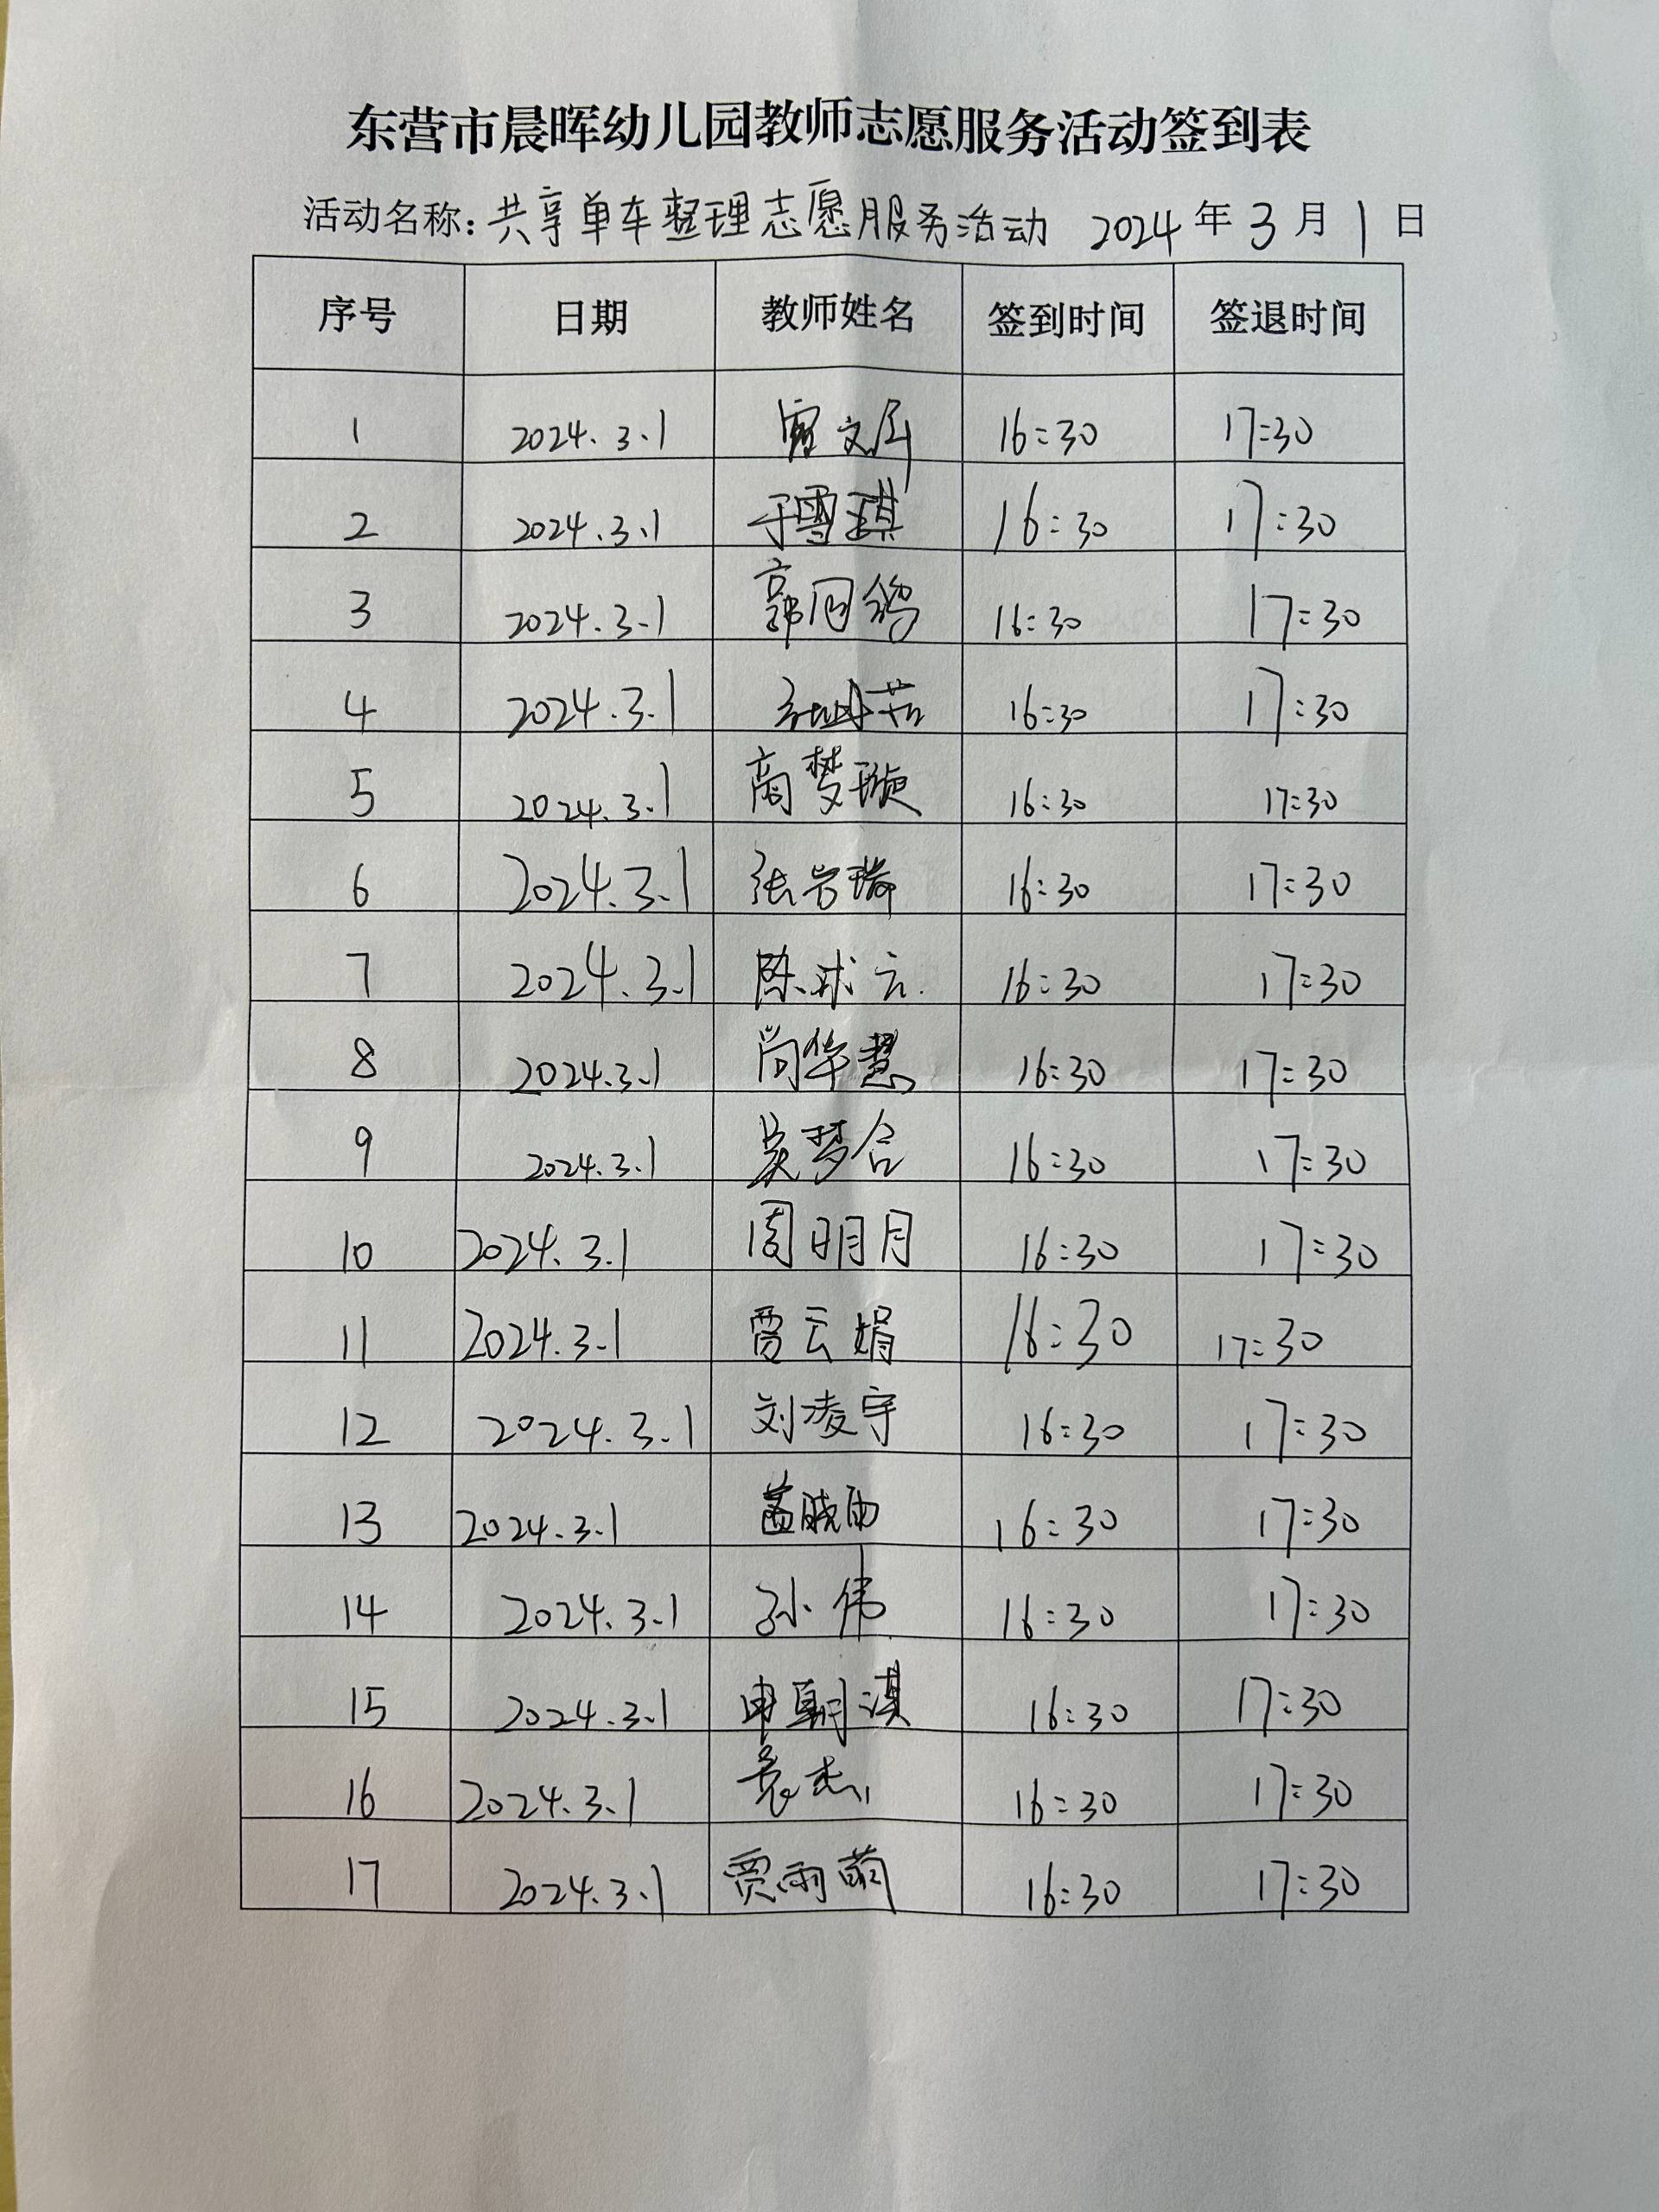 东营市晨晖幼儿园教师志愿服务活动签到表
活动名称：共享单车整理志愿服务活动 2024 年 3 月 1 日
序号 日期 教师姓名 签到时间 签退时间
1 2024.3.1 16:30 17:30
2 2024.3.1 于雪琪 16:30 17:30
3 2024.3.1 16:30 17:30
4 2024.3.1 16:30 17:30
5 2024.3.1 商梦璇 16:30 17:30
6 2024.3.1 张岩瑞 16:30 17:30
7 2024.3.1 陈球云 16:30 17:30
8 2024.3.1 尚华慧 16:30 17:30
9 2024.3.1 吴梦合 16:30 17:30
10 2024.3.1 周明月 16:30 17:30
11 2024.3.1 贾云娟 16:30 17:30
12 2024.3.1 刘凌宇 16:30 17:30
13 2024.3.1 16:30 17:30
14 2024.3.1 孙伟 16:30 17:30
15 2024.3.1 申朝淇 16:30 17:30
16 2024.3.1 袁杰 16:30 17:30
17 2024.3.1 贾雨萌 16:30 17:30